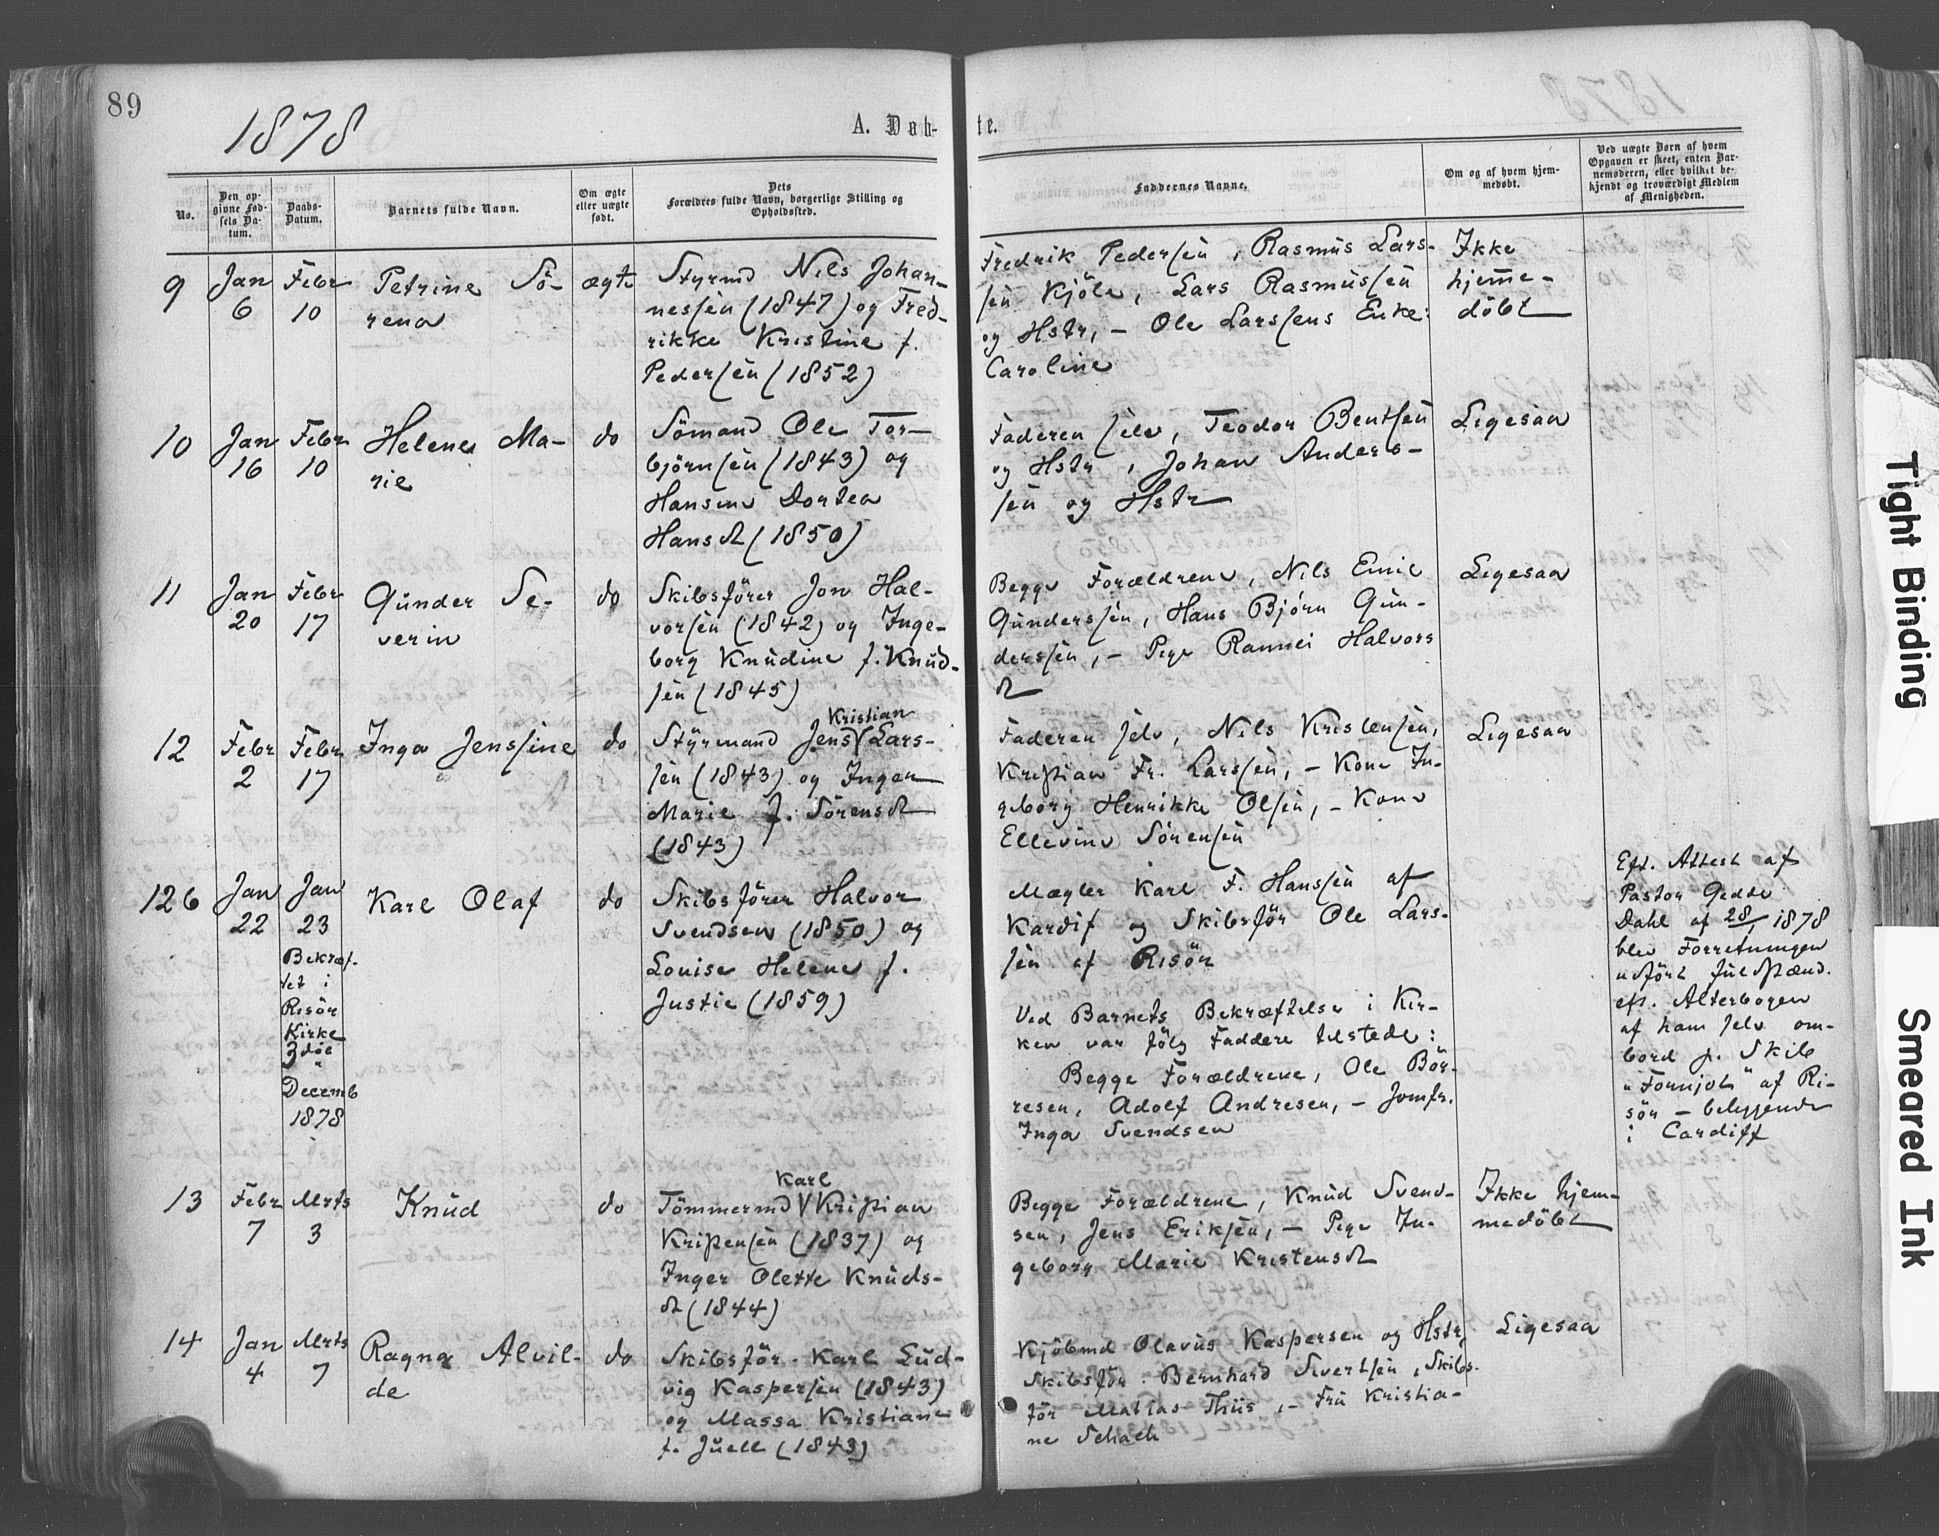 89
1878
A. Døb-
te.
No.
Den op-
givne Fød-
sels Da-
tum.
Daabs-
Datum.
Barnets fulde Navn.
Om ægte
eller uægte
født.
Dets
Forældres fulde Navn, borgerlige Stilling og
Opholdssted.
Faddernes Navne.
Om og af hvem hjem-
medøbt.
Ved uægte Børn af hvem
Opgaven er skeet, enten Bar-
nemoderen, eller hvilket be-
kjendt og troværdigt Medlem
af Menigheden.
9
Jan
6
Febr
10
Petrine Sö-
rena
ægte
Styrmd Nils Johan-
nessen (1847) og Fred-
rikke Kristine f.
Pedersen (1852)
Fredrik Pedersen, Rasmus Lars-
sen Kjöle, Lars Rasmussen
og Hstr, – Ole Larssens Enke:
Caroline
Ikke
hjemme-
döbt
10
Jan
16
Febr
10
Helene Ma-
rie
do
Sömand Ole Tor-
björnsen (1843) og
Hansine Dortea
Hansdtr (1850)
Faderen selv, Teodor Bentsen
og Hstr, Johan Anders-
sen og Hstr
Ligesaa
11
Jan
20
Febr
17
Gunder Se-
verin
do
Skibsförer Jon Hal-
vorsen (1842) og Inge-
borg Knudine f. Knud-
sen (1845)
Begge Forældrene, Nils Emil
Gunderssen, Hans Björn Gun-
derssen, – Pige Rannei Halvors
dtr
Ligesaa
12
Febr
2
Febr
17
Inga Jenssine
do
Kristian
Styrmand Jens Lars-
sen (1843) og Inger
Marie f. Sörensdtr
(1843)
Faderen selv, Nils Kristensen,
Kristian Fr. Larssen, – Kone In-
geborg Henrikke Olsen, – Kone
Ellevine Sörensen
Ligesaa
12b
Jan
22
Jan
23
Bekræf-
tet i
Risör
Kirke
3die
Decemb
1878
Karl Olaf
do
Skibsförer Halvor
Svendsen (1850) og
Louise Helene f.
Justie (1859)
Mægler Karl F. Hanssen af
Kardif og Skibsför Ole Lars-
sen af Risör
Ved Barnets Bekræftelse i Kir-
ken var fölg Faddere tilstede:
Begge Forældrene, Ole Bör-
resen, Adolf Andresen, – Jomfr.
Inga Svendsen
Eft. Attest af
Pastor Gedde
Dahl af 28/1 1878
blev Forretningen
udfört fuldstænd.
eft. Alterbogen
af ham selv om-
bord p. Skib
"Fornjot" af Ri-
sör – beliggende
i Cardiff
13
Febr
7
Mrts
3
Knud
do
Karl
Tömmermd Kristian
Kristensen (1837) og
Inger Olette Knuds-
dtr (1844)
Begge Forældrene, Knud Svend-
sen, Jens Eriksen, – Pige In-
geborg Marie Kristensdtr
Ikke hjem-
medöbt
14
Jan
4
Mrts
7
Ragna Alvil-
de
do
Skibsför. Karl Lud-
vig Kaspersen (1843)
og Massa Kristiane
f. Juell (1843)
Kjöbmd Olavus Kaspersen og Hstr,
Skibsför. Bernhard Sivertsen, Skibs-
för Matias Thiis, – Fru Kristia-
ne Schach
Ligesaa
Tight Binding
Smeared Ink